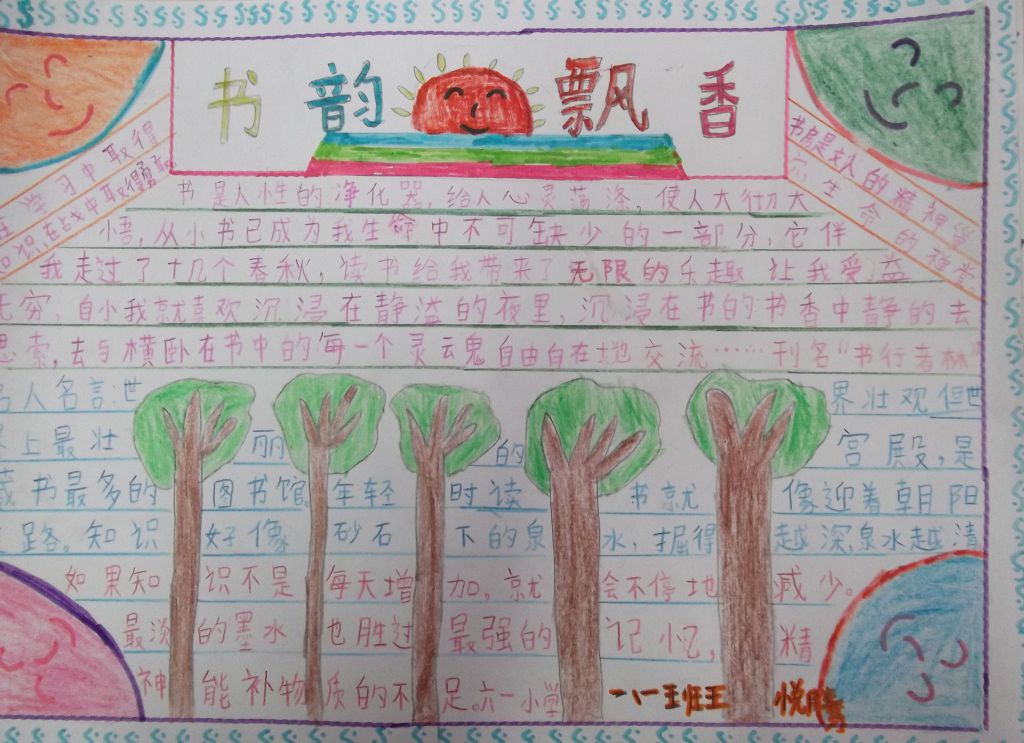 书韵飘香
学习中取得
知识,在战中取得勇敢
书房是文人的精神巢
穴生命的禅堂
书是人性的净化器,给人心灵荡涤,使人大彻大
悟,从小书已成为我生命中不可缺少的一部分,它伴
我走过了十几个春秋,读书给我带来了无限的乐趣让我受益
无穷,自小我就喜欢沉浸在静溢的夜里,沉浸在书的书香中静的去
思索,去与横卧在书中的每一个灵云鬼自由自在地交流……刊名“书行者林”
名人名言:世界壮观但世
界上最壮丽的宫殿,是
藏书最多的图书馆。年轻时读书就像迎着朝阳
路。知识好像砂石下的泉水,掘得越深泉水越清
如果知识不是每天增加,就会不停地减少。
最淡的墨水也胜过最强的记忆,精
神能补物质的不足。六一小学 一八一班王悦腾